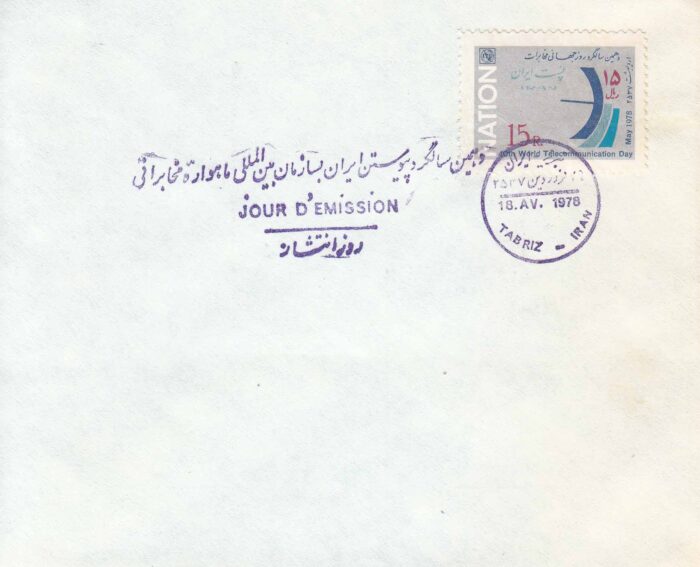 دهمین سالگرد روز جهانی مخابرات
پست ایران
۱۵
ریال
اردیبهشت ۲۵۳۷
May 1978
MATION
15R.
10th World Telecommunication Day
دهمین سالگرد پیوستن ایران بسازمان بین المللی ماهواره مخابراتی
JOUR D'EMISSION
روز انتشار
فروردین ۲۵۳۷
18.AV. 1978
TABRIZ - IRAN